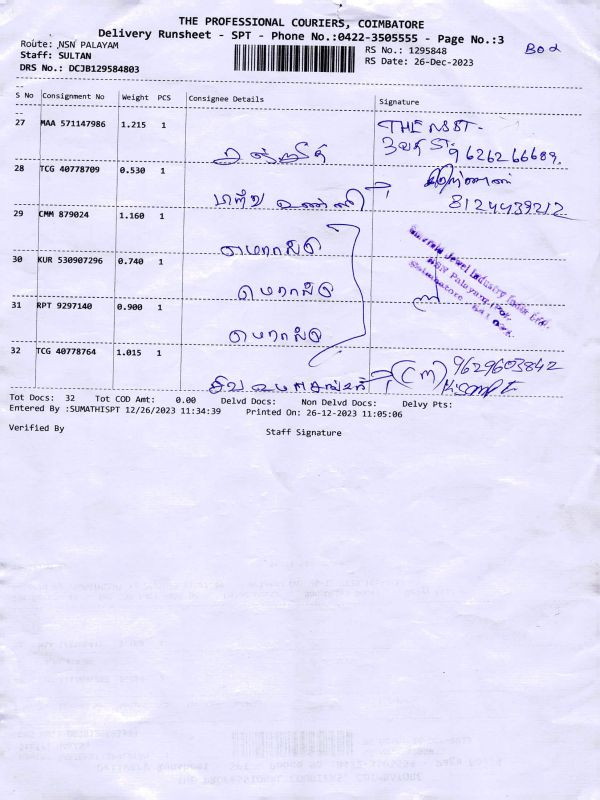 THE PROFESSIONAL COURIERS, COIMBATORE
Delivery Runsheet - SPT - Phone No.:0422-3505555 - Page No.:3
Route: NSN PALAYAM
RS No.: 1295848
Staff: SULTAN
RS Date: 26-Dec-2023
DRS No.: DCJB129584803
S No Consignment No Weight PCS Consignee Details Signature
27 MAA 571147986 1.215 1
9626266689.
28 TCG 40778709 0.530 1
8124439212
29 CMM 879024 1.160 1
Emerald Jewel Industry India Ltd.
NSN Palayam
30 KUR 530907296 0.740 1
31 RPT 9297140 0.900 1
32 TCG 40778764 1.015 1
9629603842
Tot Docs: 32 Tot COD Amt: 0.00 Delvd Docs: Non Delvd Docs: Delvy Pts:
Entered By :SUMATHISPT 12/26/2023 11:34:39 Printed On: 26-12-2023 11:05:06
Verified By Staff Signature